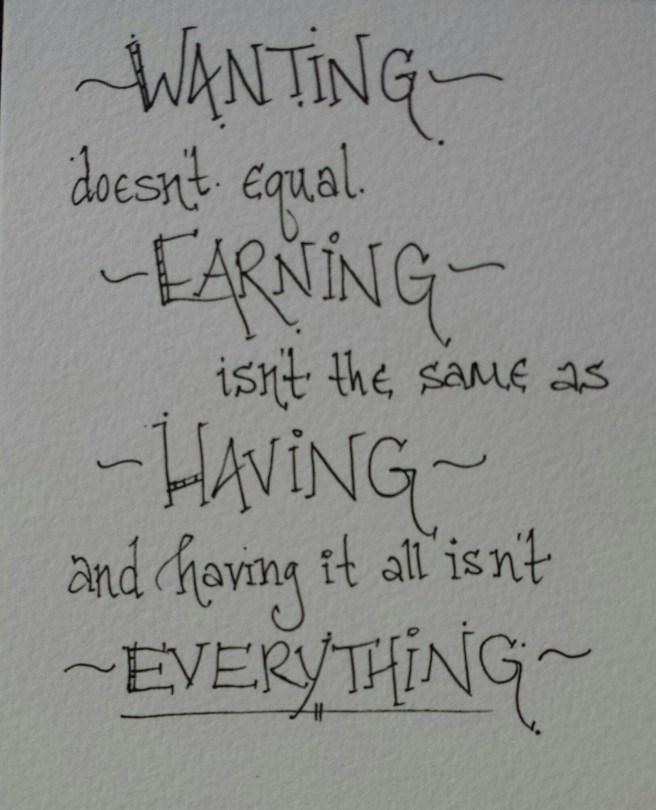 ~WANTING~
doesn't equal.
~EARNING~
isn't the same as
~HAVING~
and having it all isn't
~EVERYTHING~